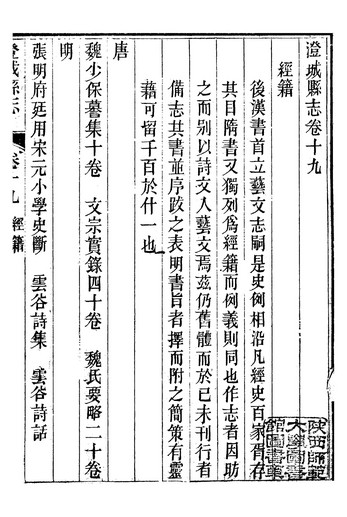 澄城縣志卷十九
經籍
後漢書首立藝文志嗣是史例相沿凡經史百家胥存
其目隋書又獨列爲經籍而例義則同也作志者因昉
之而别以詩文入藝文焉兹仍舊體而於已未刊行者
備志其書並序跋之表明書旨者擇而附之簡策有靈
藉可留千百於什一也
唐
魏少保謩集十卷 文宗實錄四十卷 魏氏要略二十卷
明
張明府廷用宋元小學史斷 雲谷詩集 雲谷詩話
澄城縣志 卷十九 經籍
陝西師範
大學圖書
館圖書章